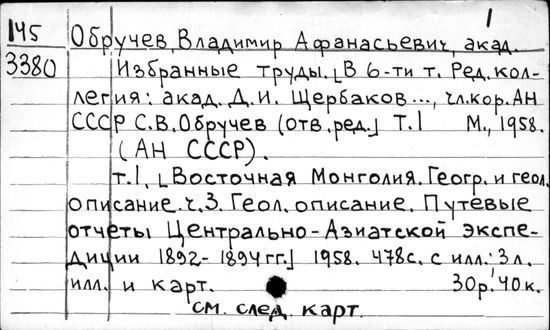 1
145
3380
Обручев, Владимир Афанасьевич, акад.
Избранные труды. [В 6-ти т. Ред. кол-
легия: акад. Д.И. Щербаков..., чл.кор. АН
СССР С.В. Обручев (отв. ред.] Т.1 М., 1958.
(АН СССР).
т.1. [Восточная Монголия. Геогр. и геол.
описание. ч.3. Геол. описание. Путевые
отчеты Центрально-Азиатской экспе-
диции 1892-1894 гг.] 1958. 478с. с илл.: 3л.
илл. и карт. 30р. 40к.
см. след. карт.